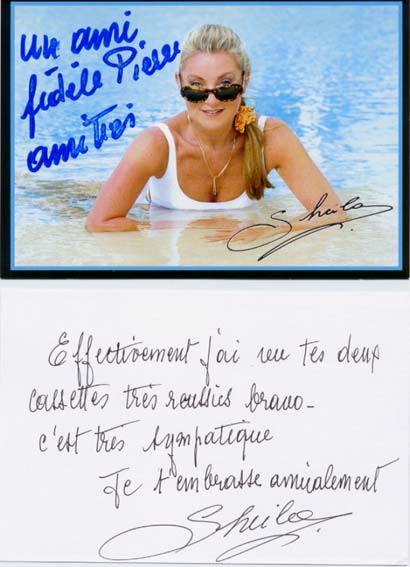 un ami
fidèle Pierre
amitiés
Sheila
Effectivement j'ai vu tes deux
cassettes très reussies bravo_
c'est très sympatique
Je t'embrasse amicalement
Sheila